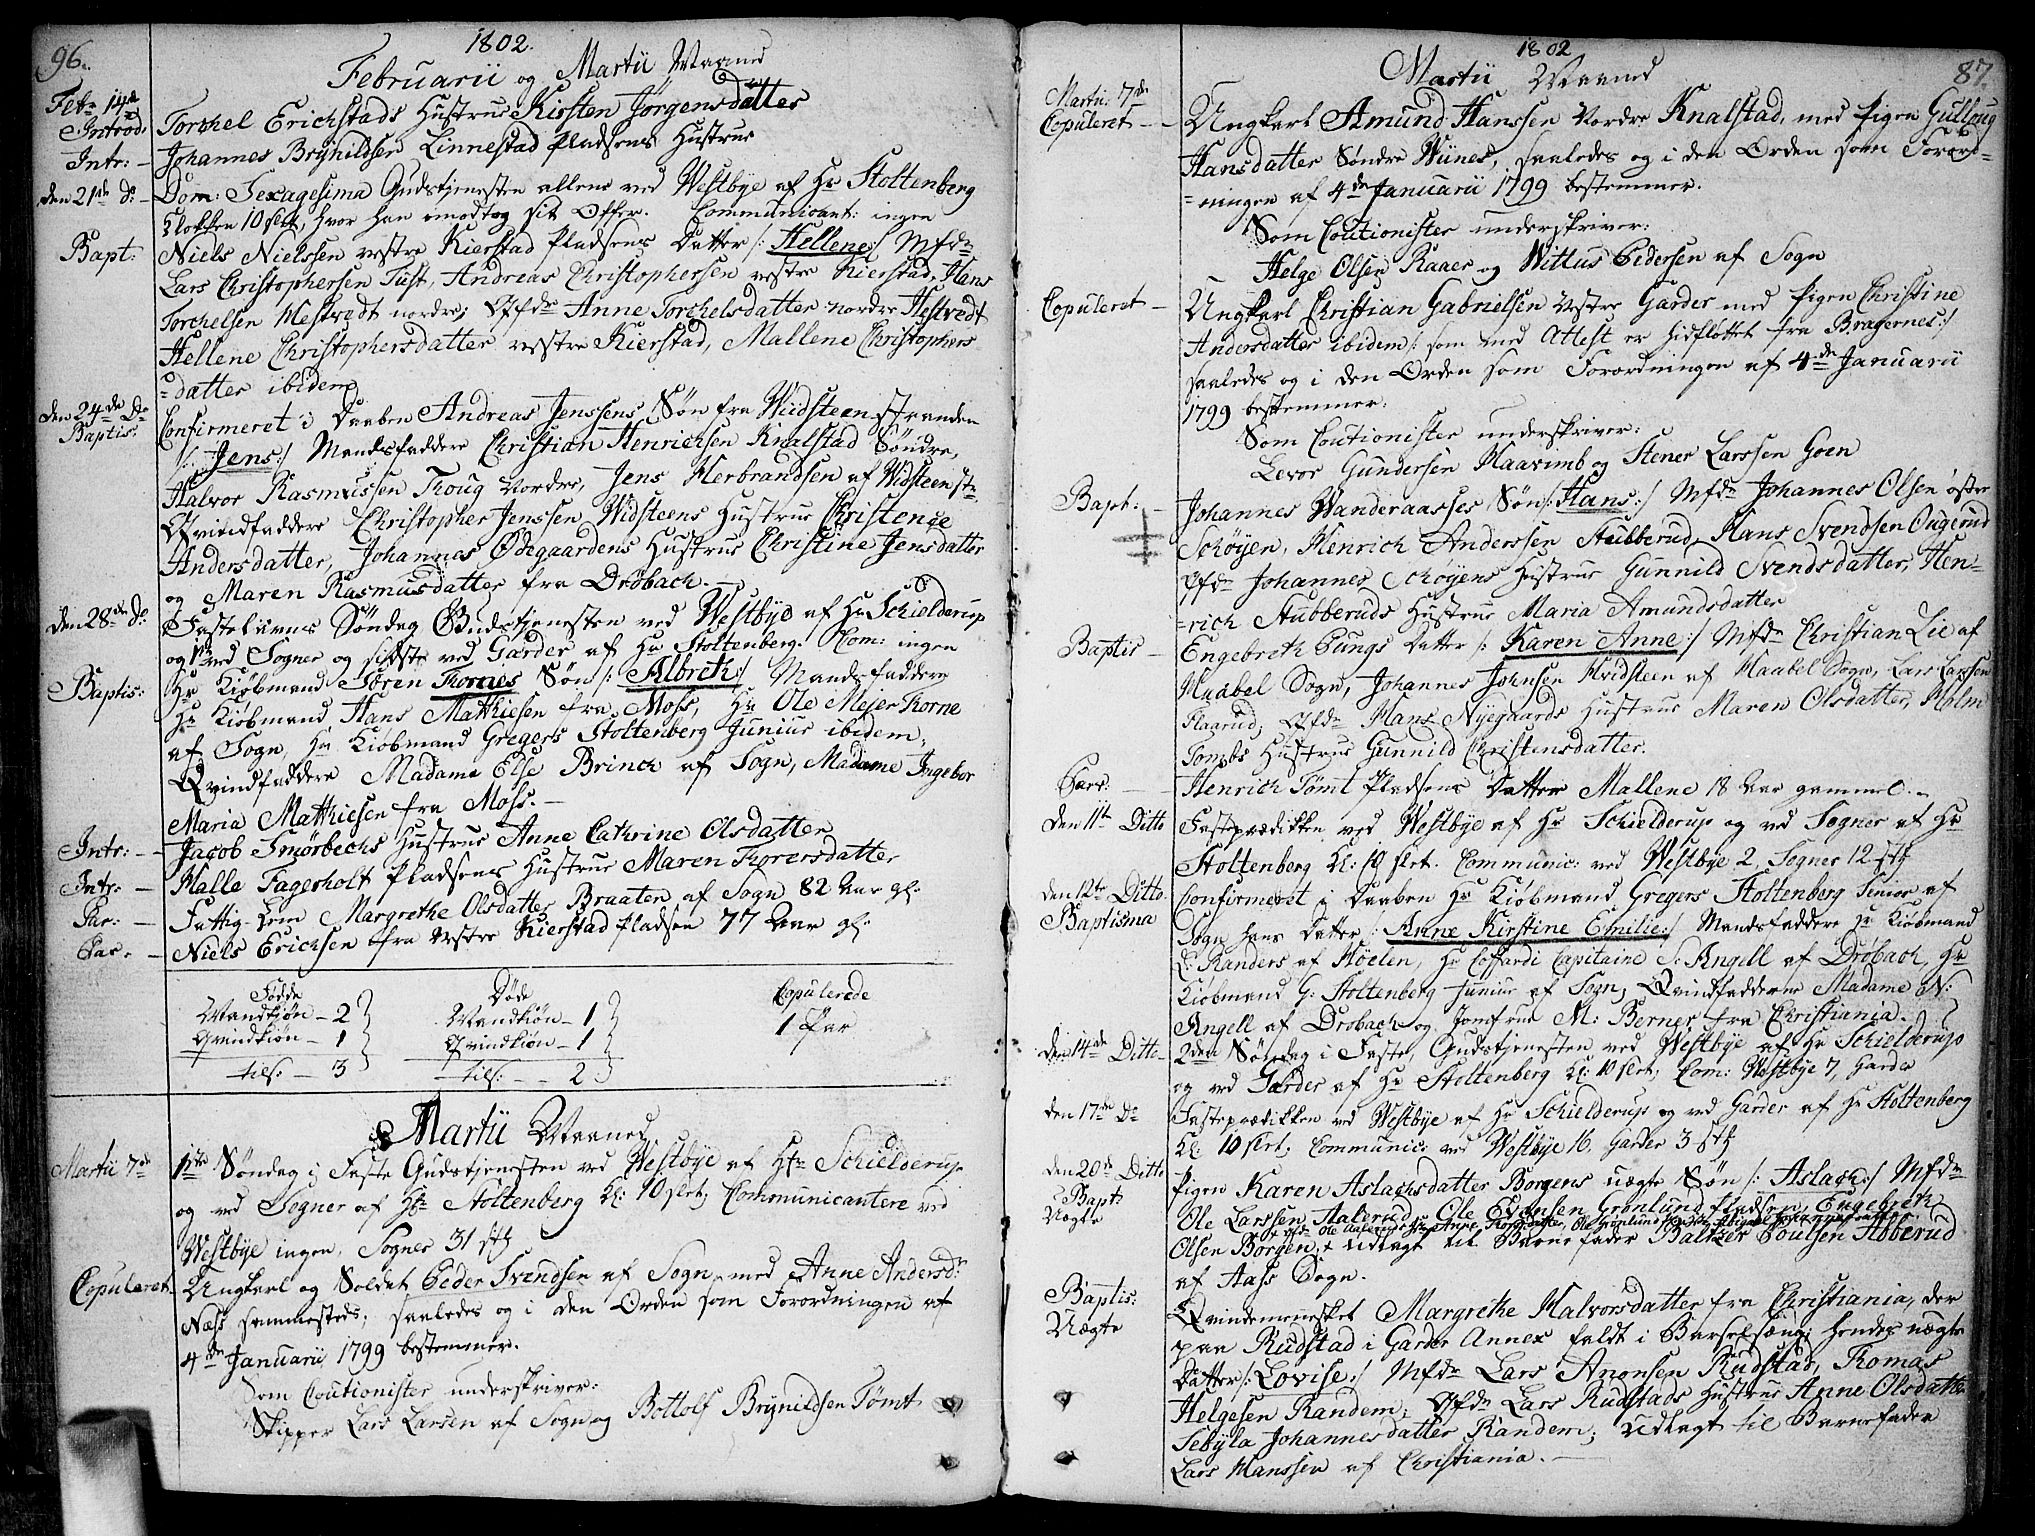 96.
1802.
Februarii og Martii Maaned
Febr 14de Torchel Erichstads Hustrue Kirsten Jørgensdatter
Introd:
Intr: - Johannes Brynildsen Linnestad Pladsens Hustrue
den 21de do - Dom: Sexagesima Gudstjenesten allene ved Westbye af Hr Stoltenberg
Klokken 10 slet, hvor han modtog sit Offer. Communicant: ingen
Bapt: Niels Nielssen vestre Kierstad Pladsens Datter /: Hellene :/ Mfdr
Lars Christophersen Tust, Andreas Christophersen vestre Kierstad, Hans
Torchelsen Hestvedt nordre; Qfdr Anne Torchelsdatter nordre Hestvedt
Hellene Christophersdatter vestre Kierstad, Mallene Christophers-
=datter ibidem
den 24de Do Confirmeret i Daaben Andreas Jenssens Søn fra Widsteen stranden
Baptis:
/: Jens :/ Mandsfaddere Christian Henrichsen Knalstad Søndre,
Halvor Rasmussen Trog Nordre, Jens Herbrandsen af Widsteen str
Qvindfaddere Christopher Jenssen Widsteens Hustrue Christence
Andersdatter, Johannes Ødegaardens Hustrue Christine Jensdatter
og Maren Rasmusdatter fra Drøbach. —
den 28de do Fastelavns Søndag Gudstjenesten ved Westbye af Hr Schielderup
og ved Sogner og sidste ved Garder af Hr Stoltenberg. Com: ingen
Baptis: Hr Kiøbmand Søren Thornes Søn /: Albreth :/ Mandsfaddere
Hr Kiøbmand Hans Matthiesen fra Moss, Hr Ole Mejer Thorne
af Sogn, Hr Kiøbmand Gregers Stoltenberg Junior ibidem,
Qvindfaddere Madame Else Brinch af Sogn, Madame Ingebor
Maria Matthiesen fra Moss. —
Intr: - - Jacob Smørbechs Hustrue Anne Cathrine Olsdatter
Intr: - Halle Fagerholt Pladsens Hustrue Maren Thorersdatter
Par: - Fattig-Lem Margrethe Olsdatter Braaten af Sogn 82 Aar gl.
Par: - Niels Erichsen fra vestre Kierstad Pladsen 77 Aar gl.
Fødde Døde Copulerede
Mandkiøn - 2 Mandkiøn - 1 1 Par
Qvindkiøn - 1 Qvindkiøn - 1
tils: - 3 tils: - - 2
Martii Maaned
Martii 7de 1ste Søndag i Faste Gudstjenesten ved Westbye af Hr Schielderup
og ved Sogner af Hr Stoltenberg Kl: 10 slet; Communicantere ved
Westbye ingen, Sogner 31 stk
Copuleret - Ungkarl og Soldat Peder Svendsen af Sogn med Anne Andersdr
Næss sammesteds; saaledes og i den Orden som Forordningen af
4de Januarii 1799 bestemmer.
Som Coutionister underskriver:
Skipper Lars Larsen af Sogn og Bottolf Brynildsen Tømt
1802
87.
Martii Maaned
Martii 7de
Copuleret - - Ungkarl Amund Hanssen Nordre Knalstad, med Pigen Gulloug
Hansdatter Søndre Wiines, saaledes og i den Orden som Forord-
=ningen af 4de Januarii 1799 bestemmer.
Som Coutionister underskriver:
Helge Olsen Raaer og Wittus Pedersen af Sogn
Copuleret - Ungkarl Christian Gabrielsen Vestre Garder med Pigen Christine
Andersdatter ibidem /: som med Attest er hidflyttet fra Bragernes :/
saaledes og i den Orden som Forordningen af 4de Januarii
1799 bestemmer:
Som Coutionister underskriver:
Levor Gundersen Haavimb og Stener Larssen Goen
Bapt: - Johannes Wanderaasses Søn /: Hans :/ Mfdr Johannes Olsen øster
Schøyen, Henrich Anderssen Stubberud, Hans Svendsen Ougerud
Qfdr Johannes Schøyens Hustrue Gunnild Svendsdatter, Hen-
=rich Stubberuds Hustrue Maria Amundsdatter
Baptis - Engebreth Pungs Datter /: Karen Anne :/ Mfdr Christian Lie af
Haabel Sogn, Johannes Johnsen Hvidsteen af Haabel Sogn, Lars Larssen
Flaarud; Qfdr Hans Nyegaards Hustrue Maren Olsdatter, Holm
Tombs Hustrue Gunnild Christensdatter.
Parr: - Henrich Tømt Pladsens Datter Mallene 18 Aar gammel. -
den 11te Ditto Fasteprædikken ved Westbye af Hr Schielderup og ved Sogner af Hr
Stoltenberg Kl: 10 slet. Communic: ved Westbye 2, Sogner 12 stk
den 12te Ditto Confirmeret i Daaben Hr Kiøbmand Gregers Stoltenberg Senior af
Baptisma
Sogn hans Datter /: Anne Kirstine Emilie :/ Mandsfaddere Hr Kiøbmand
L: Randers af Høelen, Hr Coffardi Capitaine S: Angell af Drøbach, Hr
Kiøbmand G: Stoltenberg Junior af Sogn; Qvindfadderne Madame N:
Angell af Drøbach og Jomfrue M: Berner fra Christiania. -
den 14de Ditto - 2den Søndag i Faste, Gudstjenesten ved Westbye af Hr Schielderup
og ved Garder af Hr Stoltenberg Kl: 10 slet; Com: Westbye 7, Garder
den 17de Do Fasteprædikken ved Westbye af Hr Schielderup og ved Garder af Hr Stoltenberg
Kl: 10 slet; Communic: ved Westbye 16, Garder 3 stk
den 20de Ditto Pigen Karen Aslachsdatter Borgens uægte Søn /: Aslach :/ Mfdr
Bapt:
Uægte Ole Larssen Aalerud, Ole Evensen Grønlund Pladsen, Engebreth
Olsen Borgen, + Udlagt til Barne fader Baltzer Poulsen Abberud
af Aass Sogn.
Baptis: Qvindemennesket Margrethe Halvorsdatter fra Christiania, der
Uægte paa Rudstad i Garder Annex faldt i Barselsæng; hendes uægte
Datter /: Lovise :/ Mfdr Lars Anonsen Rudstad, Thomas
Helgesen Randem, Qfdr Lars Rudstads Hustrue Anne Olsdatter
Sebyla Johannesdatter Randem; Udlagt til Barnefader
Lars Hanssen af Christiania. —